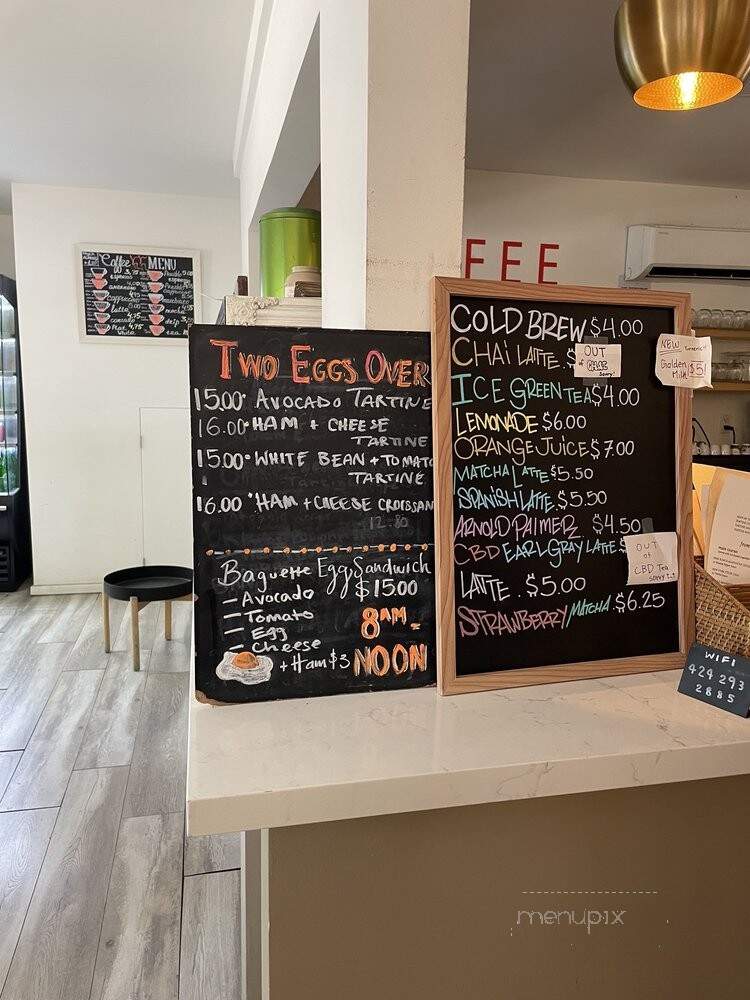 Coffee MENU
FEE
TWO EGGS OVER
15.00 · AVOCADO TARTINE
16.00 · HAM + CHEESE
TARTINE
15.00 · WHITE BEAN + TOMATO
TARTINE
16.00 · HAM + CHEESE CROISSAN
12.80
Baguette Egg Sandwich
- Avocado $15.00
- Tomato
- Egg
- Cheese
+ Ham $3
8AM-
NOON
COLD BREW $4.00
CHAI LATTE . $
OUT
of
sorry!
NEW
Golden
Milk $5
ICE GREEN TEA $4.00
LEMONADE $6.00
ORANGE JUICE $7.00
MATCHA LATTE $5.50
SPANISH LATTE . $5.50
ARNOLD PALMER $4.50
CBD EARL GRAY LATTE $
OUT
of
CBD Tea
sorry
LATTE . $5.00
STRAWBERRY/MATCHA . $6.25
WIFI
424 293
2885
menupix